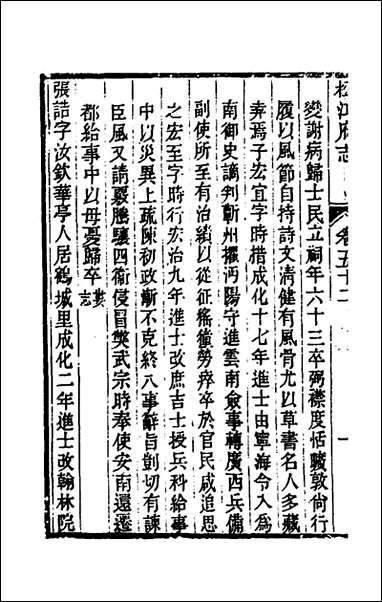 松江府志 卷五十二 一
變謝病歸士民立祠年六十三卒弼襟度恬曠敦尙行
履以風節自持詩文清健有風骨尤以草書名人多藏
弆焉子宏宜字時措成化十七年進士由寧海令入爲
南御史謫判蘄州擢沔陽守進雲南僉事轉廣西兵備
副使所至有治績以從征猺獞勞瘁卒於官民咸追思
之宏至字時行宏治九年進士改庶吉士授兵科給事
中以災異上疏陳初政漸不克終八事辭旨剴切有諫
臣風又請覈騰驤四衛侵冒獘武宗時奉使安南還遷
都給事中以母憂歸卒婁志
張誥字汝欽華亭人居鶴城里成化二年進士改翰林院